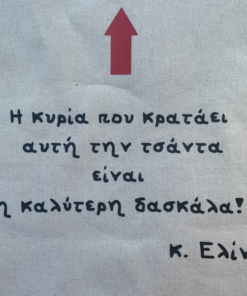 Η κυρία που κρατάει
αυτή την τσάντα
είναι
η καλύτερη δασκάλα!